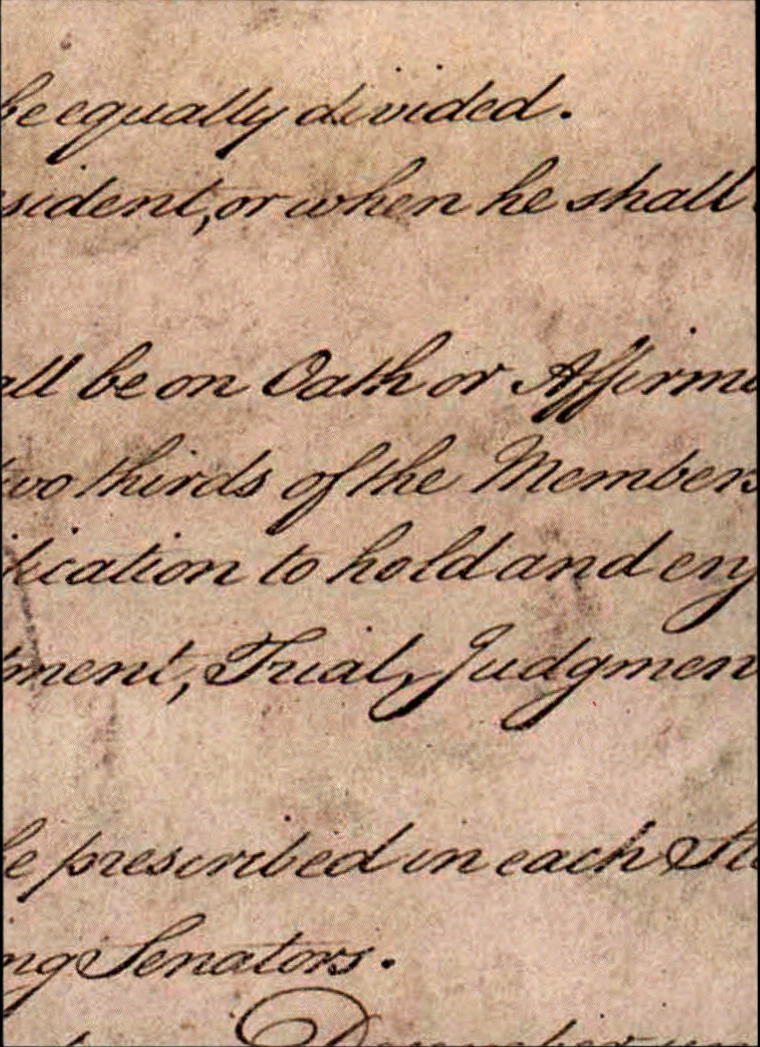 be equally divided.
sident, or when he shall
all be on Oath or Affirma
two thirds of the Members
fication to hold and enj
tment, Trial, Judgmen
be prescribed in each Sta
ng Senators.
December un